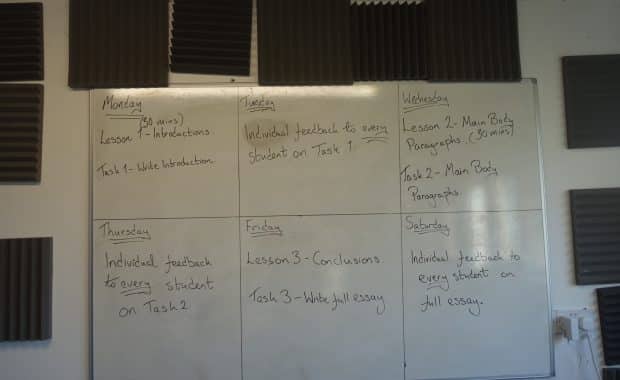 Monday
(30 mins)
Lesson 1 - Introductions
Task 1 - Write Introduction
Tuesday
Individual feedback to every
student on Task 1
Wednesday
Lesson 2 - Main Body
Paragraphs. (30 mins)
Task 2 - Main Body
Paragraphs.
Thursday
Individual feedback
to every student
on Task 2
Friday
Lesson 3 - Conclusions
Task 3 - Write full essay
Saturday
Individual feedback to
every student on
full essay.